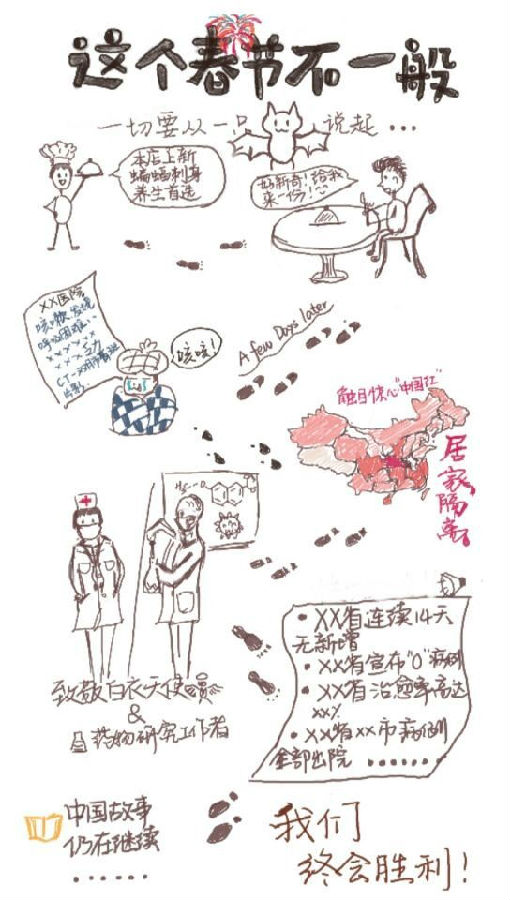 这个春节不一般
一切要从一只 说起...
本店上新
蝙蝠刺身
养生首选
好新奇!给我
来一份!
XX医院
咳嗽、发烧
呼吸困难...
x x x x x
x x x x 乏力
CT
咳咳!
A few Days later
触目惊心"中国红"
居家隔离
致敬白衣天使
&
药物研究工作者
•XX省连续14天
无新增
•XX省宣布"0"病例
•XX省治愈率高达
xx%
•XX省XX市病例
全部出院.......
中国故事
仍在继续
......
我们
终会胜利!